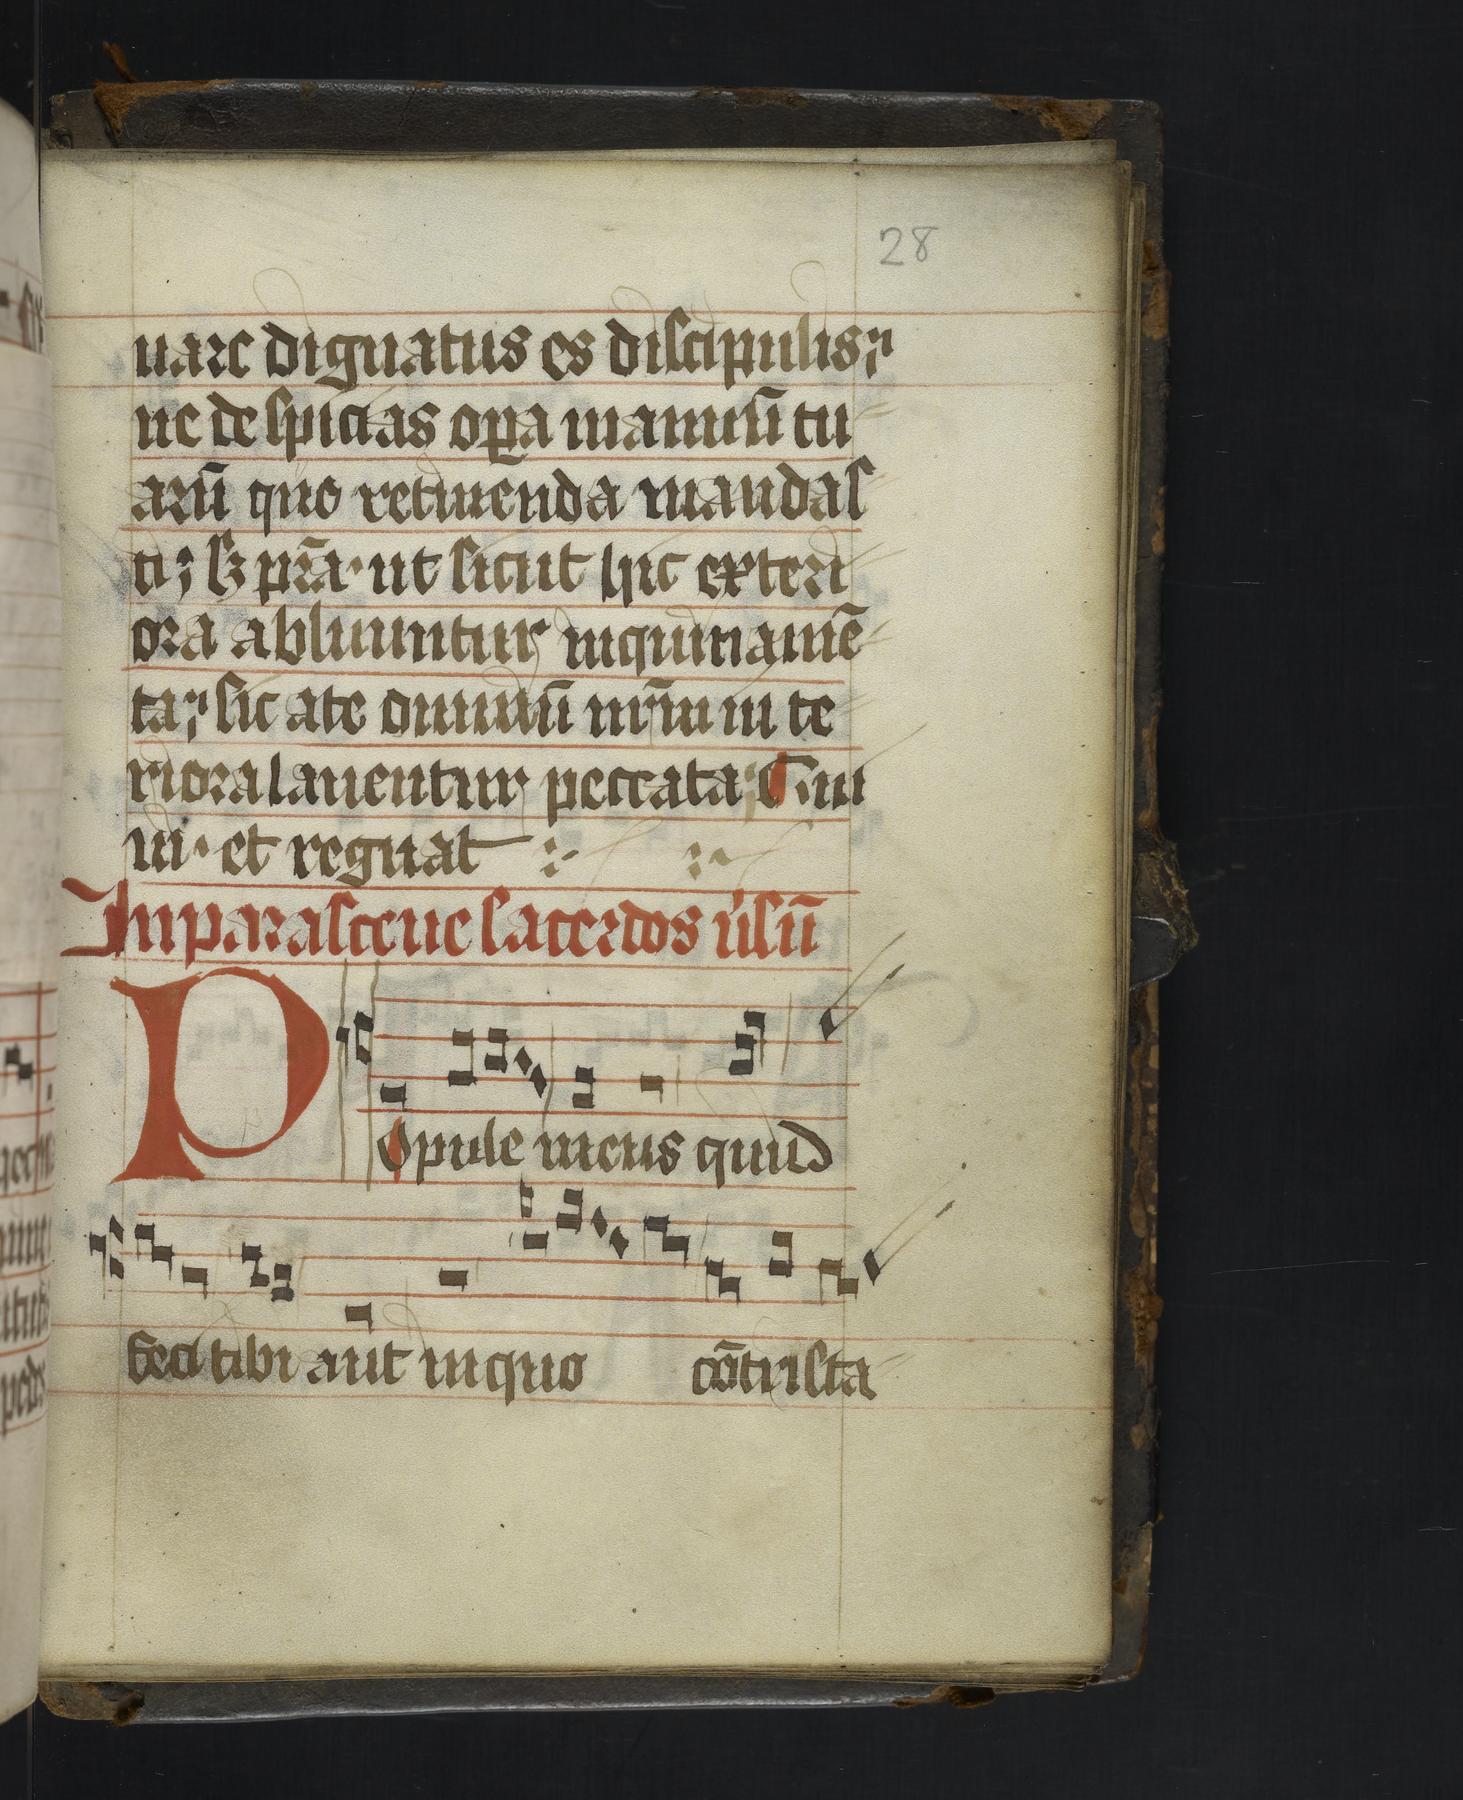 28
uare dignatus es discipulis;
ne despicias op̲a manuū tu
arū que retinenda mandas
ti; sꝫ p̄ra· ut sicut hic exteri
ora abluuntur inquinamē
ta; sic a te omniū nr̄m in te
riora lauentur peccata; Qui ui
ui· et regnat
In parasceue sacerdos u̇sū
Popule meus quid
feci tibi aut in quo cōtrista